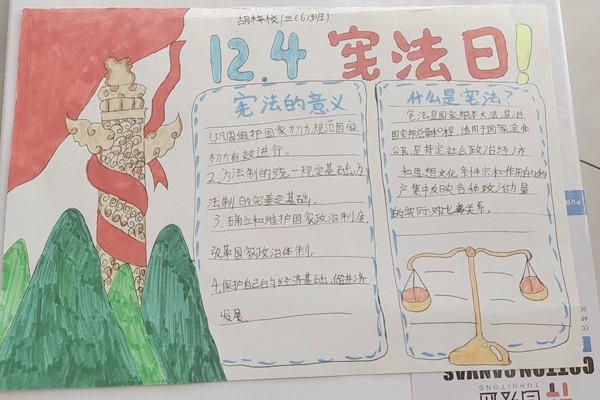 胡梓悦 三(6)班
12.4 宪法日!
宪法的意义
1.巩固维护国家权力,规范国家
权力有效进行。
2.为法制的统一规定基础,为
法制的完善定基础。
3.确立和维护国家政治制度
改革国家政治体制。
4.保护自己的经济基础,保井济
发展
什么是宪法?
宪法是国家根本大法,是治
国安邦总制章程,适用于国家全体
公民,是特定社会政治经济
和思想文化条件综合作用的
产集中反映各种政治力量
的实际对比关系。
PUB
COTTON CANVAS
TUHUITONG